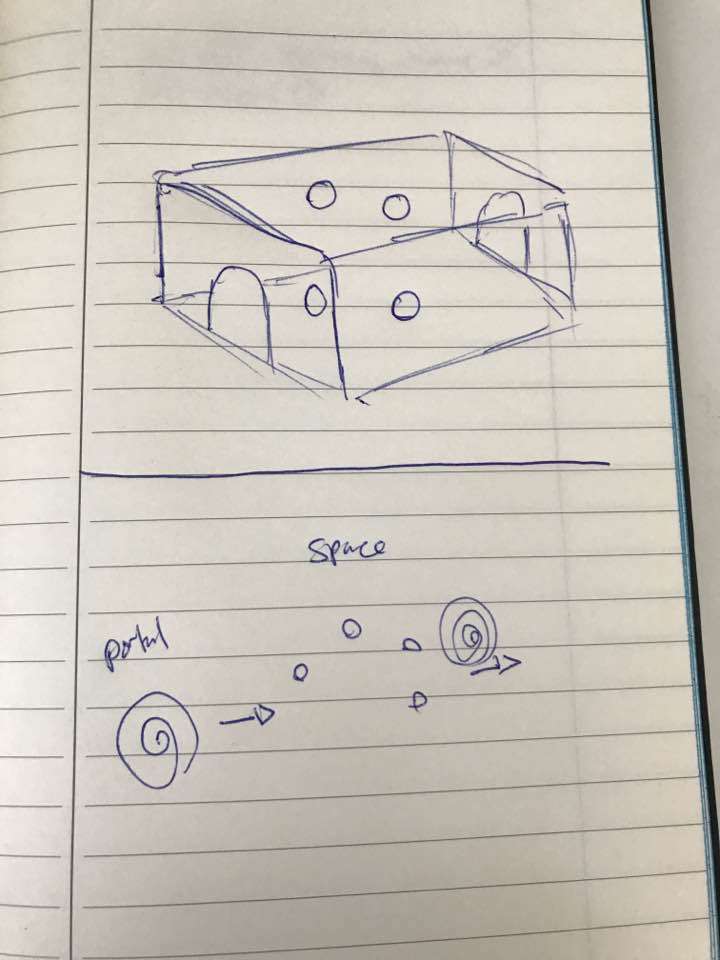 Space
portal